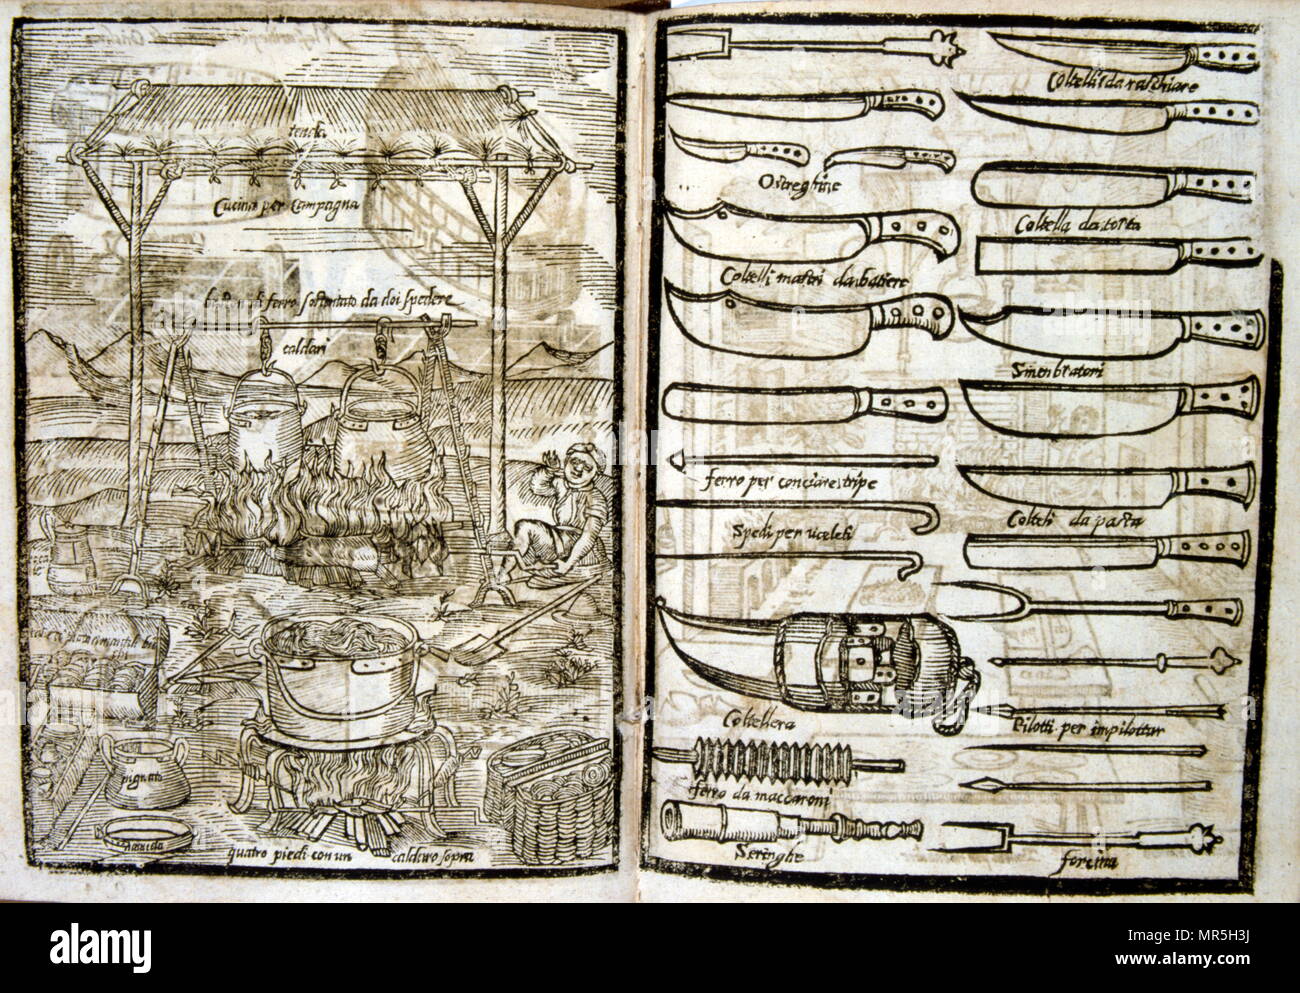 tenda
Cucina per Campagna
di ferro sostentato da doi spedere
caldari
pignato
quatro piedi con un caldaro sopra
Coltelli da raschiare
Ostreghine
Coltella da torta
Coltelli mastri da batiere
Smenbratori
ferro per conciare tripe
Colteli da pasta
Spedi per uceleti
Coltellera
Pilotti per impilottar
ferro da maccaroni
Seringhe
forcina
alamy
Image ID: MR5H3J
www.alamy.com